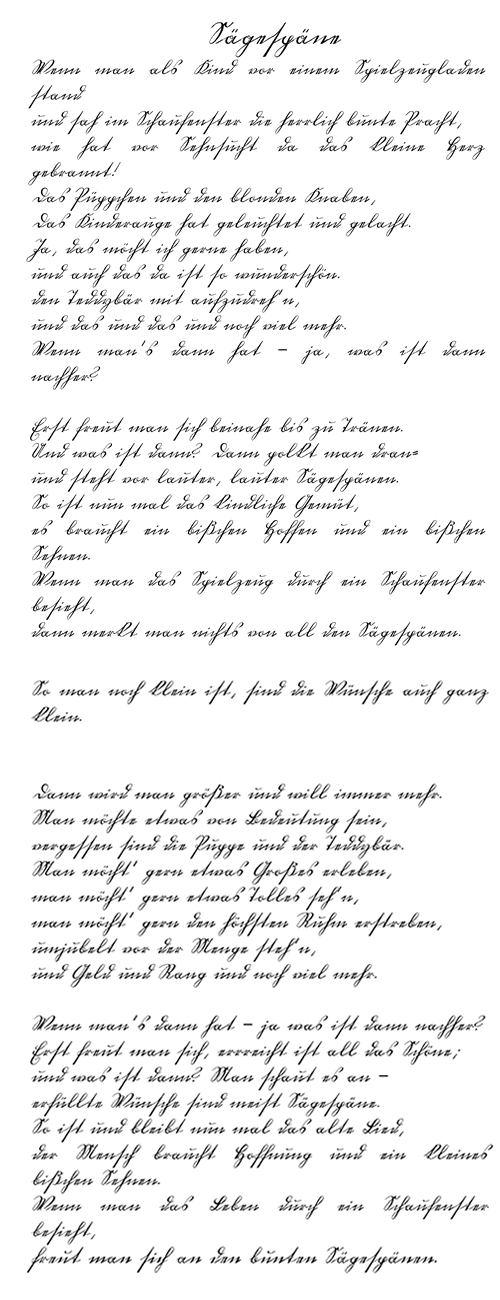 Sägespäne
Wenn man als Kind vor einem Spielzeugladen
stand
und sah im Schaufenster die herrlich bunte Pracht,
wie hat vor Sehnsucht da das kleine Herz
gebrannt!
Das Püppchen und den blonden Knaben,
das Kinderauge hat geleuchtet und gelacht.
Ja, das möcht ich gerne haben,
und auch das da ist so wunderschön.
den Teddybär mit aufzudreh'n,
und das und das und noch viel mehr.
Wenn man's dann hat – ja, was ist dann
nachher?
Erst freut man sich beinahe bis zu Tränen.
Und was ist dann? Dann polkt man dran-
und steht vor lauter, lauter Sägespänen.
So ist nun mal das kindliche Gemüt,
es braucht ein bißchen Hoffen und ein bißchen
Sehnen.
Wenn man das Spielzeug durch ein Schaufenster
besieht,
dann merkt man nichts von all den Sägespänen.
So man noch klein ist, sind die Wünsche auch ganz
klein.
Dann wird man größer und will immer mehr.
Man möchte etwas von Bedeutung sein,
vergessen sind die Puppe und der Teddybär.
Man möcht' gern etwas Großes erleben,
man möcht' gern etwas Tolles seh'n,
man möcht' gern den höchsten Ruhm erstreben,
umjubelt vor der Menge steh'n,
und Geld und Rang und noch viel mehr.
Wenn man's dann hat – ja was ist dann nachher?
Erst freut man sich, errreicht ist all das Schöne;
und was ist dann? Man schaut es an –
erfüllte Wünsche sind meist Sägespäne.
So ist und bleibt nun mal das alte Lied,
der Mensch braucht Hoffnung und ein kleines
bißchen Sehnen.
Wenn man das Leben durch ein Schaufenster
besieht,
freut man sich an den bunten Sägespänen.